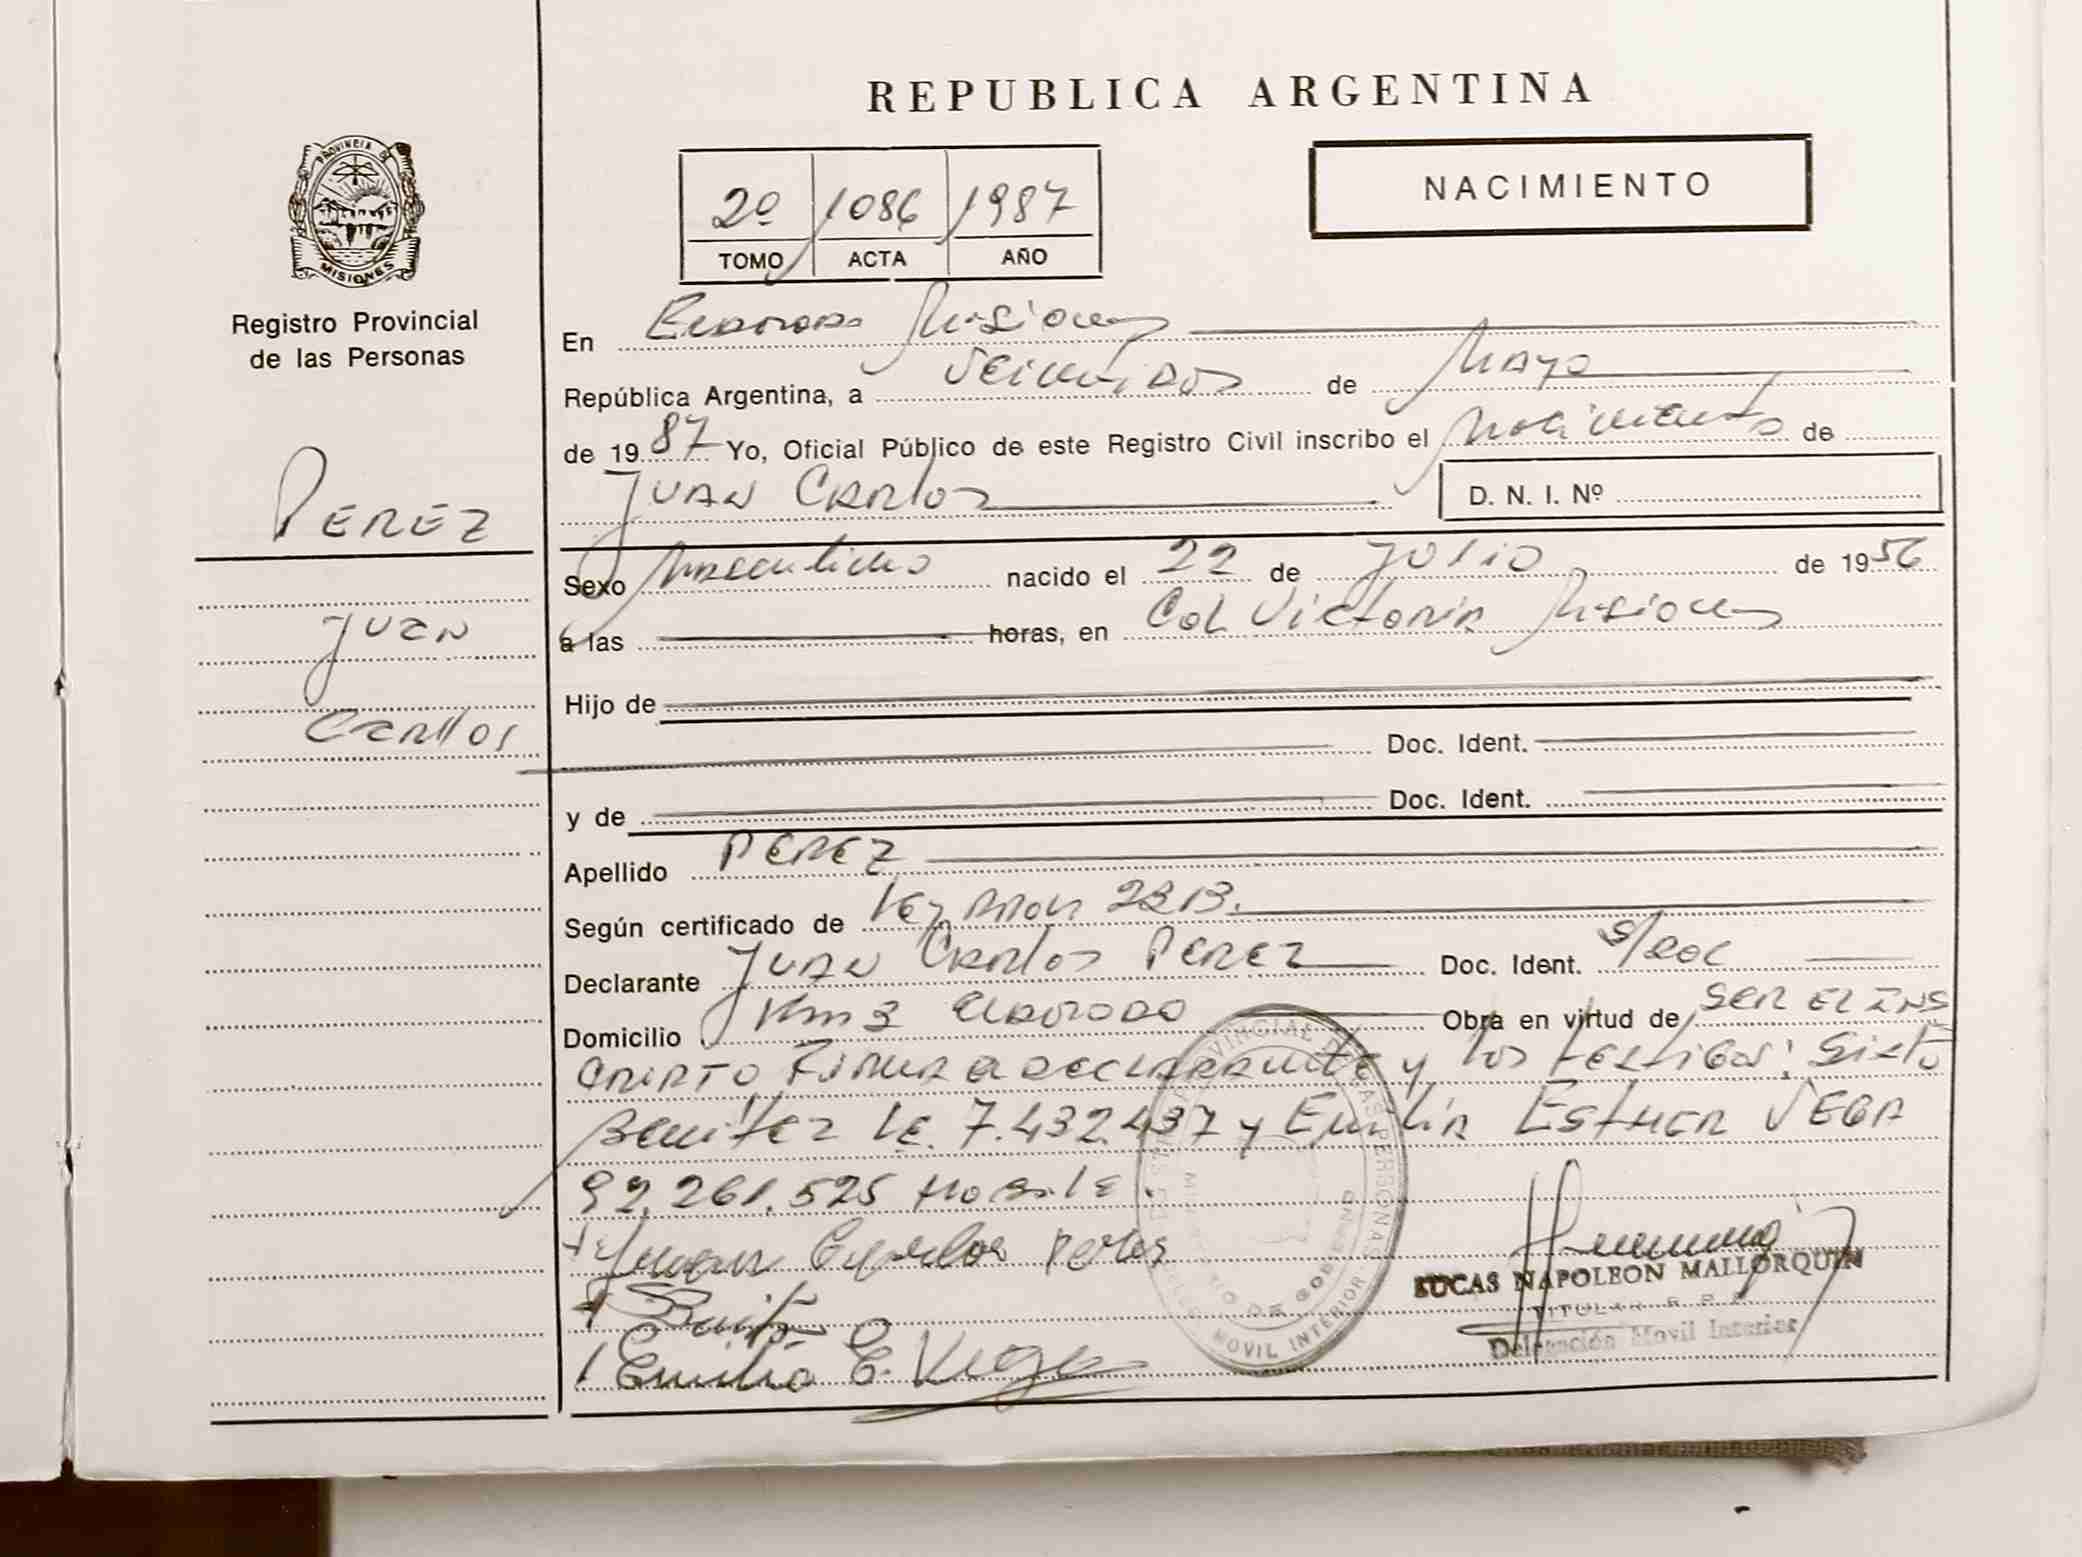 REPUBLICA ARGENTINA
PROVINCIA DE
MISIONES
Registro Provincial
de las Personas
2º 1086 1987
TOMO ACTA AÑO
NACIMIENTO
En Eldorado Misiones
República Argentina, a veintidos de Mayo
de 1987 Yo, Oficial Público de este Registro Civil inscribo el Nacimiento de
Juan Carlos D. N. I. Nº
PEREZ
Juan
Carlos
Sexo Masculino nacido el 22 de Julio de 1956
a las horas, en Col Victoria Misiones
Hijo de
Doc. Ident.
y de Doc. Ident.
Apellido PEREZ
Según certificado de Ley 2213.
Declarante Juan Carlos Perez Doc. Ident. s/doc
Domicilio Km 3 Eldorado Obra en virtud de SER EL INS
CRIPTO Firma el declarante y los testigos: Sixto
Benitez le. 7.432.437 y Emilia Esther VEGA
92.261.525
Juan Carlos Perez
Benitez
Emilia E. Vega
REGISTRO PROVINCIAL DE LAS PERSONAS
MINISTERIO DE GOBIERNO
MOVIL INTERIOR
LUCAS NAPOLEON MALLORQUIN
TITULAR R. P. P.
Delegación Movil Interior